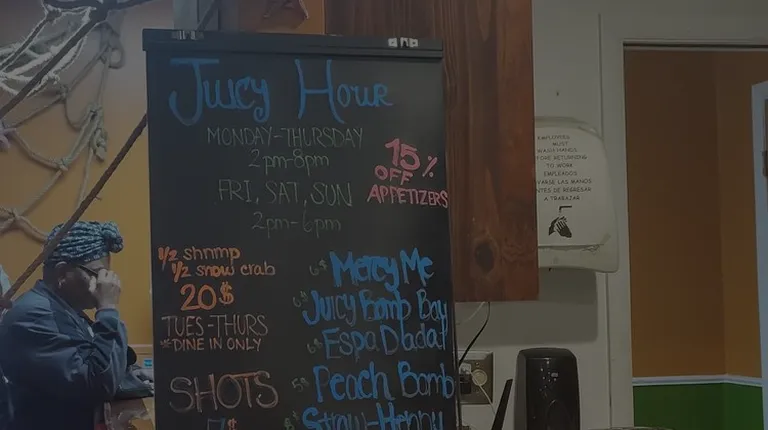 Juicy Hour
MONDAY-THURSDAY
2pm-8pm
FRI, SAT, SUN
2pm-6pm
15%
OFF
APPETIZERS
1/2 shrimp
1/2 snow crab
20$
TUES-THURS
DINE IN ONLY
SHOTS
Mercy Me
Juicy Bomp Bay
Espa Dadat
5$ Peach Bomb
Straw-Henny
EMPLOYEES
MUST
WASH HANDS
RETURNING
TO WORK
EMPLEADOS
LAS MANOS
DE REGRESAR
A TRABAJAR